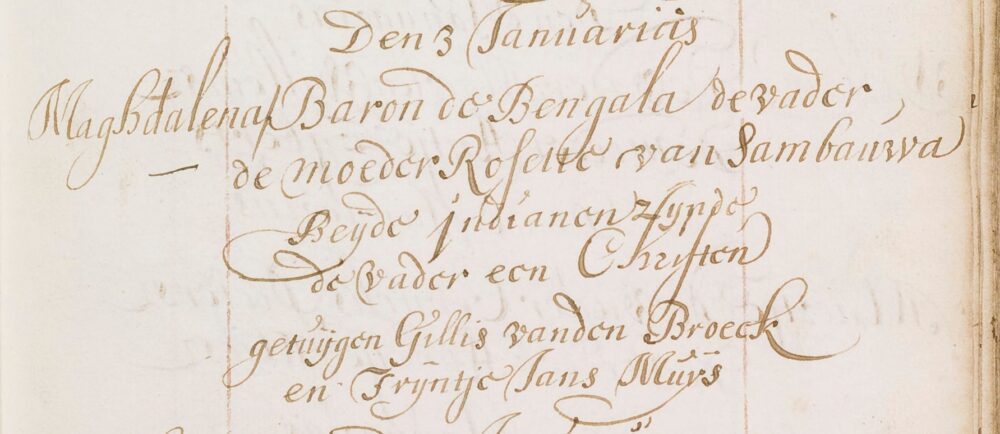 Den 3 Januariüs
Maghdalena / Baron de Bengala de vader
de moeder Rosette van Sambauwa
Beÿde Jndianen zÿnde
de vader een Christen
getuÿgen Gillis vanden Broeck
en Trÿntje Jans Muÿs